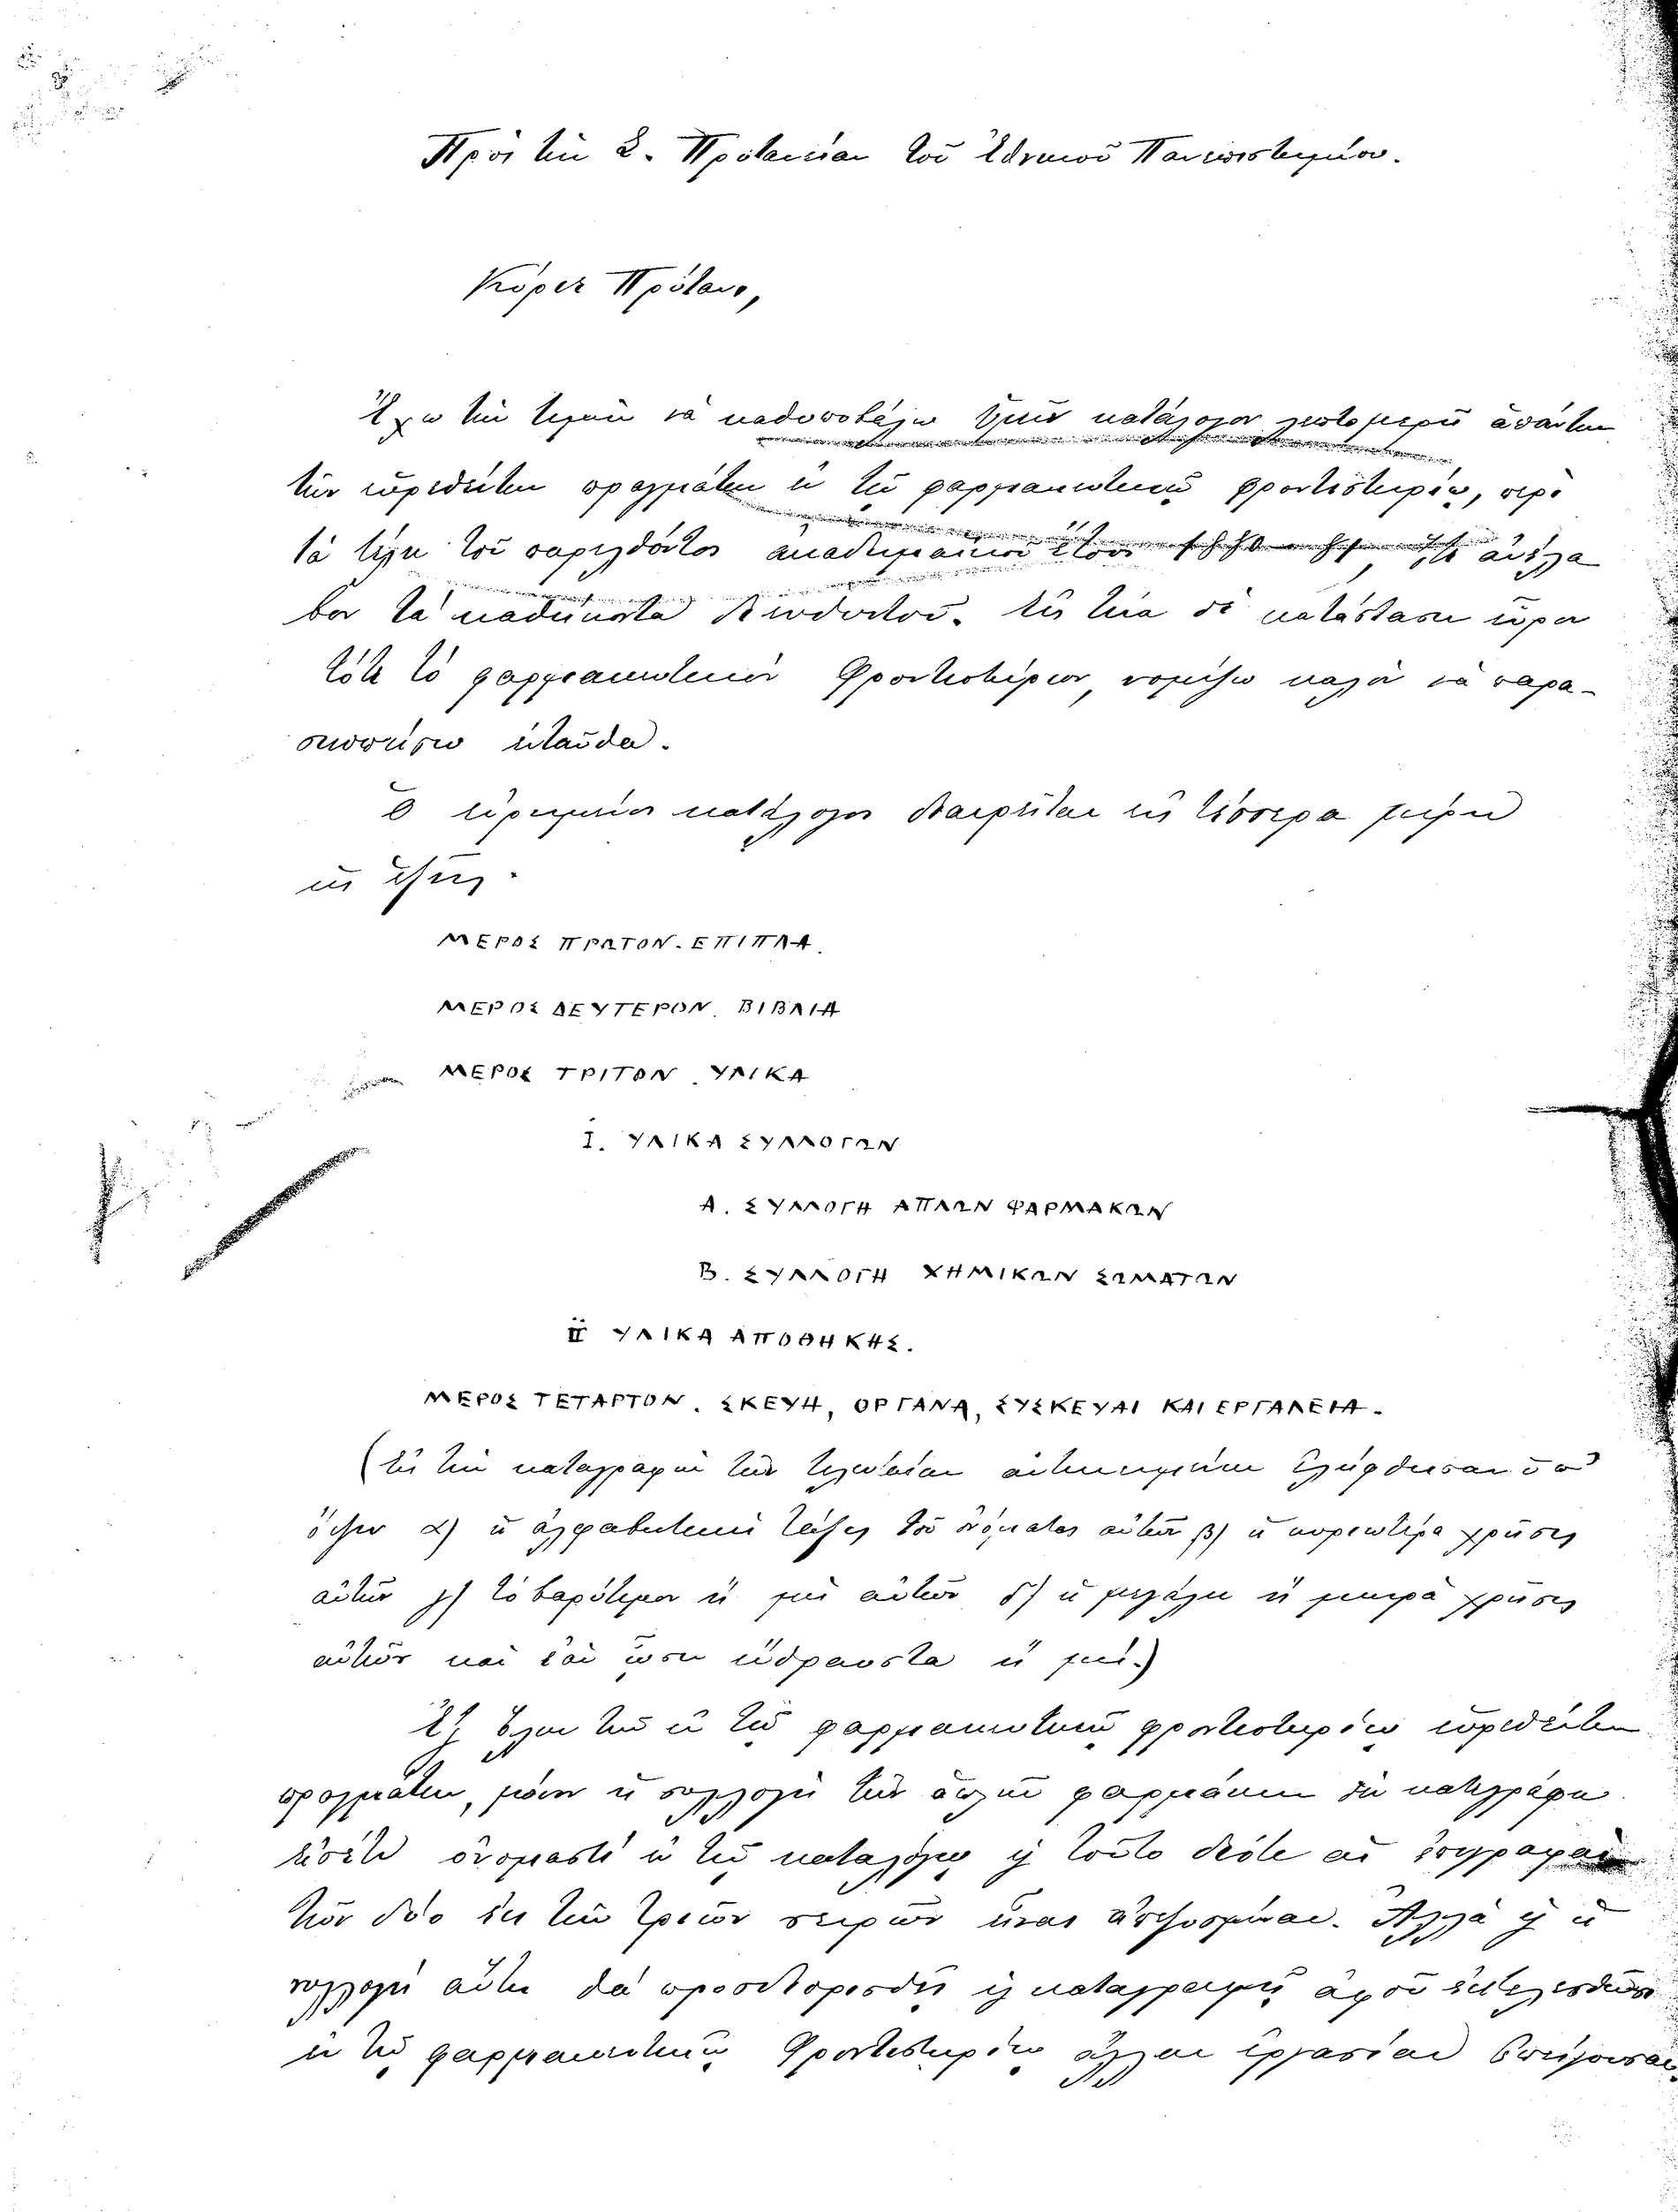 Πρὸς τὴν Σ. Πρυτανείαν τοῦ Ἐθνικοῦ Πανεπιστημίου.
Κύριε Πρύτανι,
Ἔχω τὴν τιμὴν νὰ καθυποβάλω ὑμῖν κατάλογον λεπτομερῆ ἁπάντων
τῶν εὑρεθέντων πραγμάτων ἐν τῷ φαρμακευτικῷ φροντιστηρίῳ, περὶ
τὰ τέλη τοῦ παρελθόντος ἀκαδημαϊκοῦ ἔτους ὅτε ἀνέλα
βον τὰ καθήκοντα Διευθυντοῦ. εἰς τίνα δὲ κατάστασιν εὗρον
τότε τὸ φαρμακευτικὸν Φροντιστήριον, νομίζω καλὸν νὰ παρα-
σιωπήσω ἐνταῦθα.
Ὁ εἰρημένος κατάλογος διαιρεῖται εἰς τέσσερα μέρη
ὡς ἑξῆς·
ΜΕΡΟΣ ΠΡΩΤΟΝ. ΕΠΙΠΛΑ.
ΜΕΡΟΣ ΔΕΥΤΕΡΟΝ. ΒΙΒΛΙΑ
ΜΕΡΟΣ ΤΡΙΤΟΝ. ΥΛΙΚΑ
I. ΥΛΙΚΑ ΣΥΛΛΟΓΩΝ
Α. ΣΥΛΛΟΓΗ ΑΠΛΩΝ ΦΑΡΜΑΚΩΝ
Β. ΣΥΛΛΟΓΗ ΧΗΜΙΚΩΝ ΣΩΜΑΤΩΝ
II ΥΛΙΚΑ ΑΠΟΘΗΚΗΣ.
ΜΕΡΟΣ ΤΕΤΑΡΤΟΝ. ΣΚΕΥΗ, ΟΡΓΑΝΑ, ΣΥΣΚΕΥΑΙ ΚΑΙ ΕΡΓΑΛΕΙΑ.
(εἰς τὴν καταγραφὴν τῶν τελευταίων ἀντικειμένων ἐλήφθησαν ὑπ'
ὄψιν α) ἡ ἀλφαβητικὴ τάξις τοῦ ὀνόματος αὐτῶν β) ἡ κυριωτέρα χρῆσις
αὐτῶν γ) τὸ βαρύτιμον ἢ μὴ αὐτῶν δ) ἡ μεγάλη ἢ μικρὰ χρῆσις
αὐτῶν καὶ ἐὰν ὦσιν εὔθραυστα ἢ μή.)
Ἐξ ὅλων τῶν ἐν τῷ φαρμακευτικῷ φροντιστηρίῳ εὑρεθέντων
πραγμάτων, μόνον ἡ συλλογὴ τῶν ἁπλῶν φαρμάκων δὲν κατεγράφη
εἰσέτι ὀνομαστὶ ἐν τῷ καταλόγῳ καὶ τοῦτο διότι αἱ ἐπιγραφαὶ
τῶν δύο ἐκ τῶν τριῶν σειρῶν εἶναι ἐφθαρμέναι. Ἀλλὰ καὶ ἡ
συλλογὴ αὕτη θὰ προσδιορισθῇ καὶ καταγραφῇ ἀφοῦ ἐκτελεσθῶσιν
ἐν τῷ φαρμακευτικῷ Φροντιστηρίῳ ἄλλαι ἐργασίαι